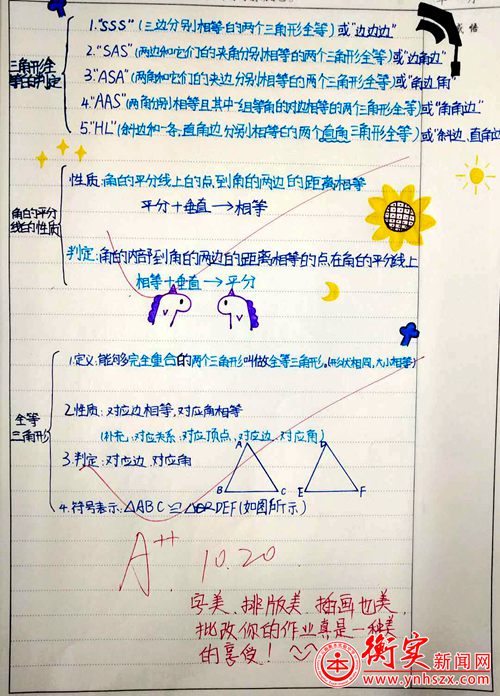 1."SSS"(三边分别相等的两个三角形全等)或"边边边"
2."SAS"(两边和它们的夹角分别相等的两个三角形全等)或"边角边"
三角形全等的判定
3."ASA"(两角和它们的夹边分别相等的两个三角形全等)或"角边角"
4."AAS"(两角分别相等且其中一组等角的对边相等的两个三角形全等)或"角角边"
5."HL"(斜边和一条直角边分别相等的两个直角三角形全等)或"斜边、直角边
性质:角的平分线上的点到角的两边的距离相等
平分+垂直→相等
角的平分线的性质
判定:角的内部到角的两边的距离相等的点在角的平分线上
相等+垂直→平分
1.定义:能够完全重合的两个三角形叫做全等三角形。(形状相同,大小相等)
2.性质:对应边相等,对应角相等
全等三角形
(补充:对应关系:对应顶点、对应边、对应角)
3.判定:对应边、对应角
A D
B C E F
4.符号表示:△ABC≌△DEF(如图所示)
A++ 10.20
字美、排版美、插画也美,
批改你的作业真是一种美
的享受!
衡实新闻网
www.ynhszx.com